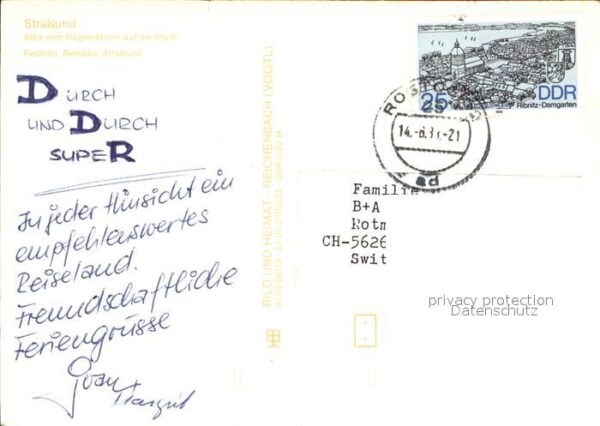 Stralsund
Blick vom Rügendamm auf die Stadt
Farbfoto: Reinicke, Stralsund
DURCH
UND DURCH
SUPER
In jeder Hinsicht ein
empfehlenswertes
Reiseland.
Freundschaftliche
Feriengrüsse
Margrit
BILD UND HEIMAT · REICHENBACH (VOGTL)
25 DDR
Ribnitz-Damgarten
ROSTOCK
25
14.-6.
-21
ad
Familie
B+A
Rotm
CH-5626
Swit
privacy protection
Datenschutz